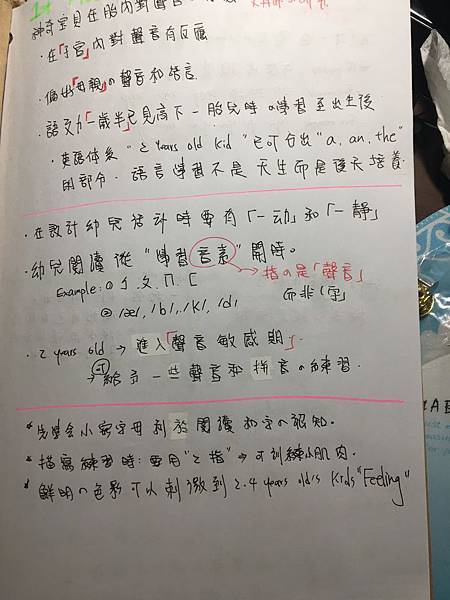 神奇宝貝在胎內對聲音
・在「子宮」內對聲音有反應
・偏好「母親」的聲音和語言
・語文力「一歲半」已見高下－胎兒時の學習至出生後
・英語体系 "2 years old kid" 已可分出 "a, an, the"
的部份. 語言學習不是天生而是後天培養.
・在設計幼兒活動時要有「一动」和「一静」
・幼兒閱讀從 "學習音素" 開時。
→ 指の是「聲音」
而非「字」
Example: ① ㄅ.ㄆ.ㄇ.ㄈ
② /æ/, /b/, /k/, /d/
・2 years old → 進入「聲音敏感期」.
→ 給予一些聲音和拼音の練習.
* 先學会小寫字母利於閱讀和字の認知.
* 描寫練習時: 要用 "2指" → 可訓練小肌肉.
* 鮮明の色彩可以刺激到 2.4 years old's Kids "Feeling"